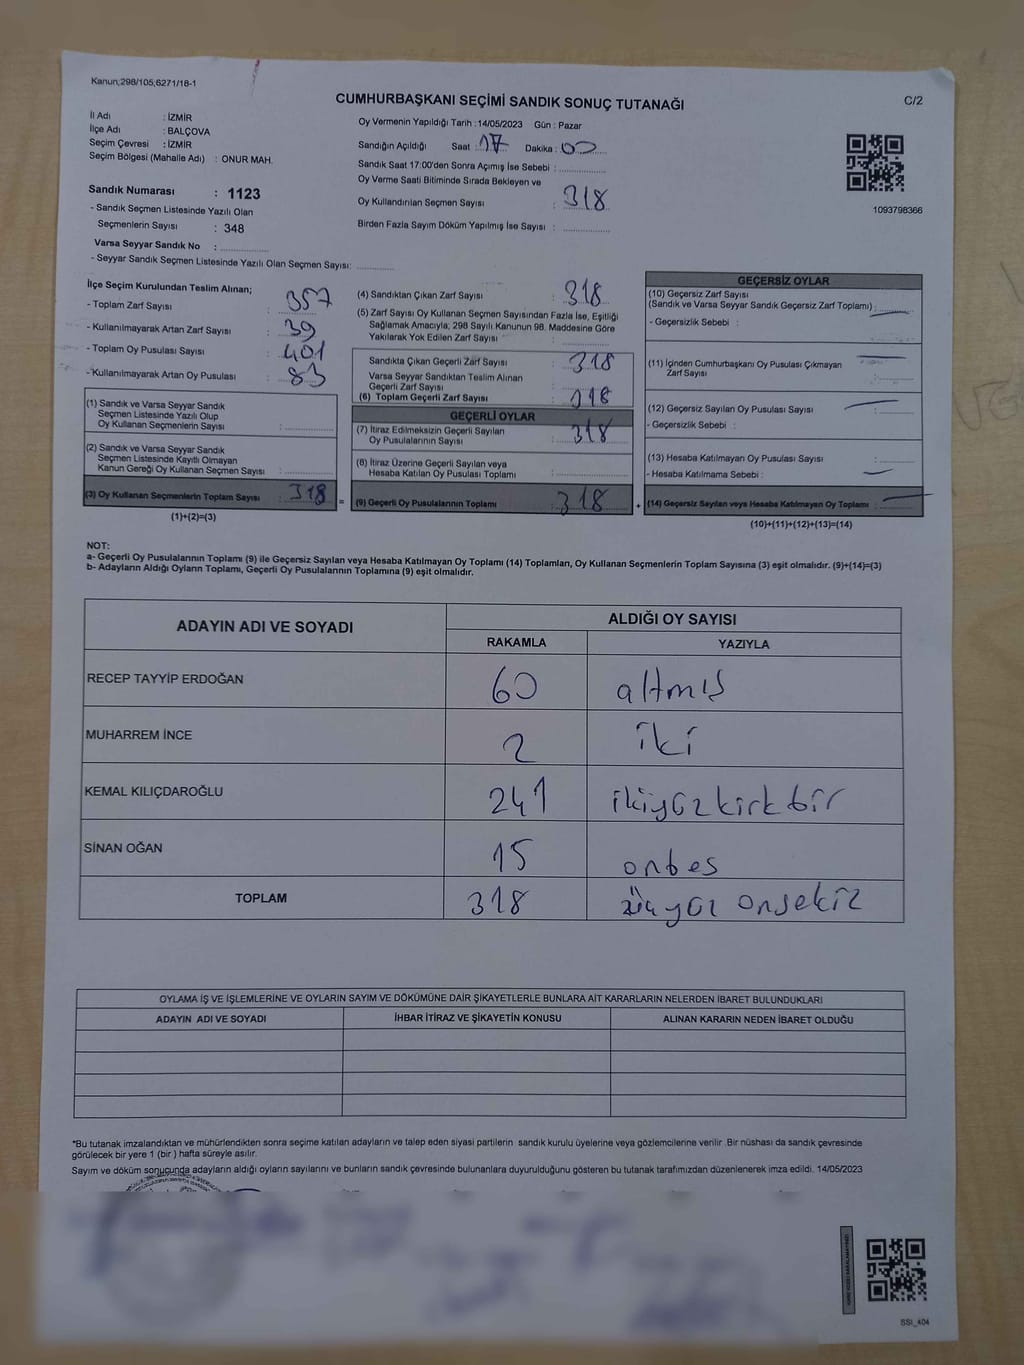 Kanun;298/105;6271/18-1
CUMHURBAŞKANI SEÇİMİ SANDIK SONUÇ TUTANAĞI
C/2
İl Adı : İZMİR
İlçe Adı : BALÇOVA
Seçim Çevresi : İZMİR
Seçim Bölgesi (Mahalle Adı) : ONUR MAH.
Sandık Numarası : 1123
- Sandık Seçmen Listesinde Yazılı Olan
Seçmenlerin Sayısı : 348
Varsa Seyyar Sandık No :
- Seyyar Sandık Seçmen Listesinde Yazılı Olan Seçmen Sayısı:
Oy Vermenin Yapıldığı Tarih :14/05/2023 Gün : Pazar
Sandığın Açıldığı Saat : 17 Dakika : 00
Sandık Saat 17:00'den Sonra Açımış İse Sebebi :
Oy Verme Saati Bitiminde Sırada Bekleyen ve
Oy Kullandırılan Seçmen Sayısı : 318
Birden Fazla Sayım Döküm Yapılmış İse Sayısı :
1093798366
İlçe Seçim Kurulundan Teslim Alınan;
- Toplam Zarf Sayısı : 357
- Kullanılmayarak Artan Zarf Sayısı : 39
- Toplam Oy Pusulası Sayısı : 401
- Kullanılmayarak Artan Oy Pusulası : 83
(1) Sandık ve Varsa Seyyar Sandık
Seçmen Listesinde Yazılı Olup
Oy Kullanan Seçmenlerin Sayısı :
(2) Sandık ve Varsa Seyyar Sandık
Seçmen Listesinde Kayıtlı Olmayan
Kanun Gereği Oy Kullanan Seçmen Sayısı :
(3) Oy Kullanan Seçmenlerin Toplam Sayısı : 318 =
(1)+(2)=(3)
(4) Sandıktan Çıkan Zarf Sayısı : 318
(5) Zarf Sayısı Oy Kullanan Seçmen Sayısından Fazla İse, Eşitliği
Sağlamak Amacıyla, 298 Sayılı Kanunun 98. Maddesine Göre
Yakılarak Yok Edilen Zarf Sayısı :
Sandıkta Çıkan Geçerli Zarf Sayısı : 318
Varsa Seyyar Sandıktan Teslim Alınan
Geçerli Zarf Sayısı :
(6) Toplam Geçerli Zarf Sayısı : 318
GEÇERLİ OYLAR
(7) İtiraz Edilmeksizin Geçerli Sayılan
Oy Pusulalarının Sayısı : 318
(8) İtiraz Üzerine Geçerli Sayılan veya
Hesaba Katılan Oy Pusulası Toplamı :
(9) Geçerli Oy Pusulalarının Toplamı : 318 +
GEÇERSİZ OYLAR
(10) Geçersiz Zarf Sayısı
(Sandık ve Varsa Seyyar Sandık Geçersiz Zarf Toplamı) :
- Geçersizlik Sebebi :
(11) İçinden Cumhurbaşkanı Oy Pusulası Çıkmayan
Zarf Sayısı :
(12) Geçersiz Sayılan Oy Pusulası Sayısı :
- Geçersizlik Sebebi :
(13) Hesaba Katılmayan Oy Pusulası Sayısı :
- Hesaba Katılmama Sebebi :
(14) Geçersiz Sayılan veya Hesaba Katılmayan Oy Toplamı :
(10)+(11)+(12)+(13)=(14)
NOT:
a- Geçerli Oy Pusulalarının Toplamı (9) ile Geçersiz Sayılan veya Hesaba Katılmayan Oy Toplamı (14) Toplamları, Oy Kullanan Seçmenlerin Toplam Sayısına (3) eşit olmalıdır. (9)+(14)=(3)
b- Adayların Aldığı Oyların Toplamı, Geçerli Oy Pusulalarının Toplamına (9) eşit olmalıdır.
ADAYIN ADI VE SOYADI
ALDIĞI OY SAYISI
RAKAMLA YAZIYLA
RECEP TAYYİP ERDOĞAN 60 altmış
MUHARREM İNCE 2 iki
KEMAL KILIÇDAROĞLU 241 ikiyüzkirkbir
SİNAN OĞAN 15 onbes
TOPLAM 318 üçyüz onsekiz
OYLAMA İŞ VE İŞLEMLERİNE VE OYLARIN SAYIM VE DÖKÜMÜNE DAİR ŞİKAYETLERLE BUNLARA AİT KARARLARIN NELERDEN İBARET BULUNDUKLARI
ADAYIN ADI VE SOYADI İHBAR İTİRAZ VE ŞİKAYETİN KONUSU ALINAN KARARIN NEDEN İBARET OLDUĞU
*Bu tutanak imzalandıktan ve mühürlendikten sonra seçime katılan adayların ve talep eden siyasi partilerin sandık kurulu üyelerine veya gözlemcilerine verilir .Bir nüshası da sandık çevresinde
görülecek bir yere 1 (bir ) hafta süreyle asılır.
Sayım ve döküm sonucunda adayların aldığı oyların sayılarını ve bunların sandık çevresinde bulunanlara duyurulduğunu gösteren bu tutanak tarafımızdan düzenlenerek imza edildi. 14/05/2023
SSI_404